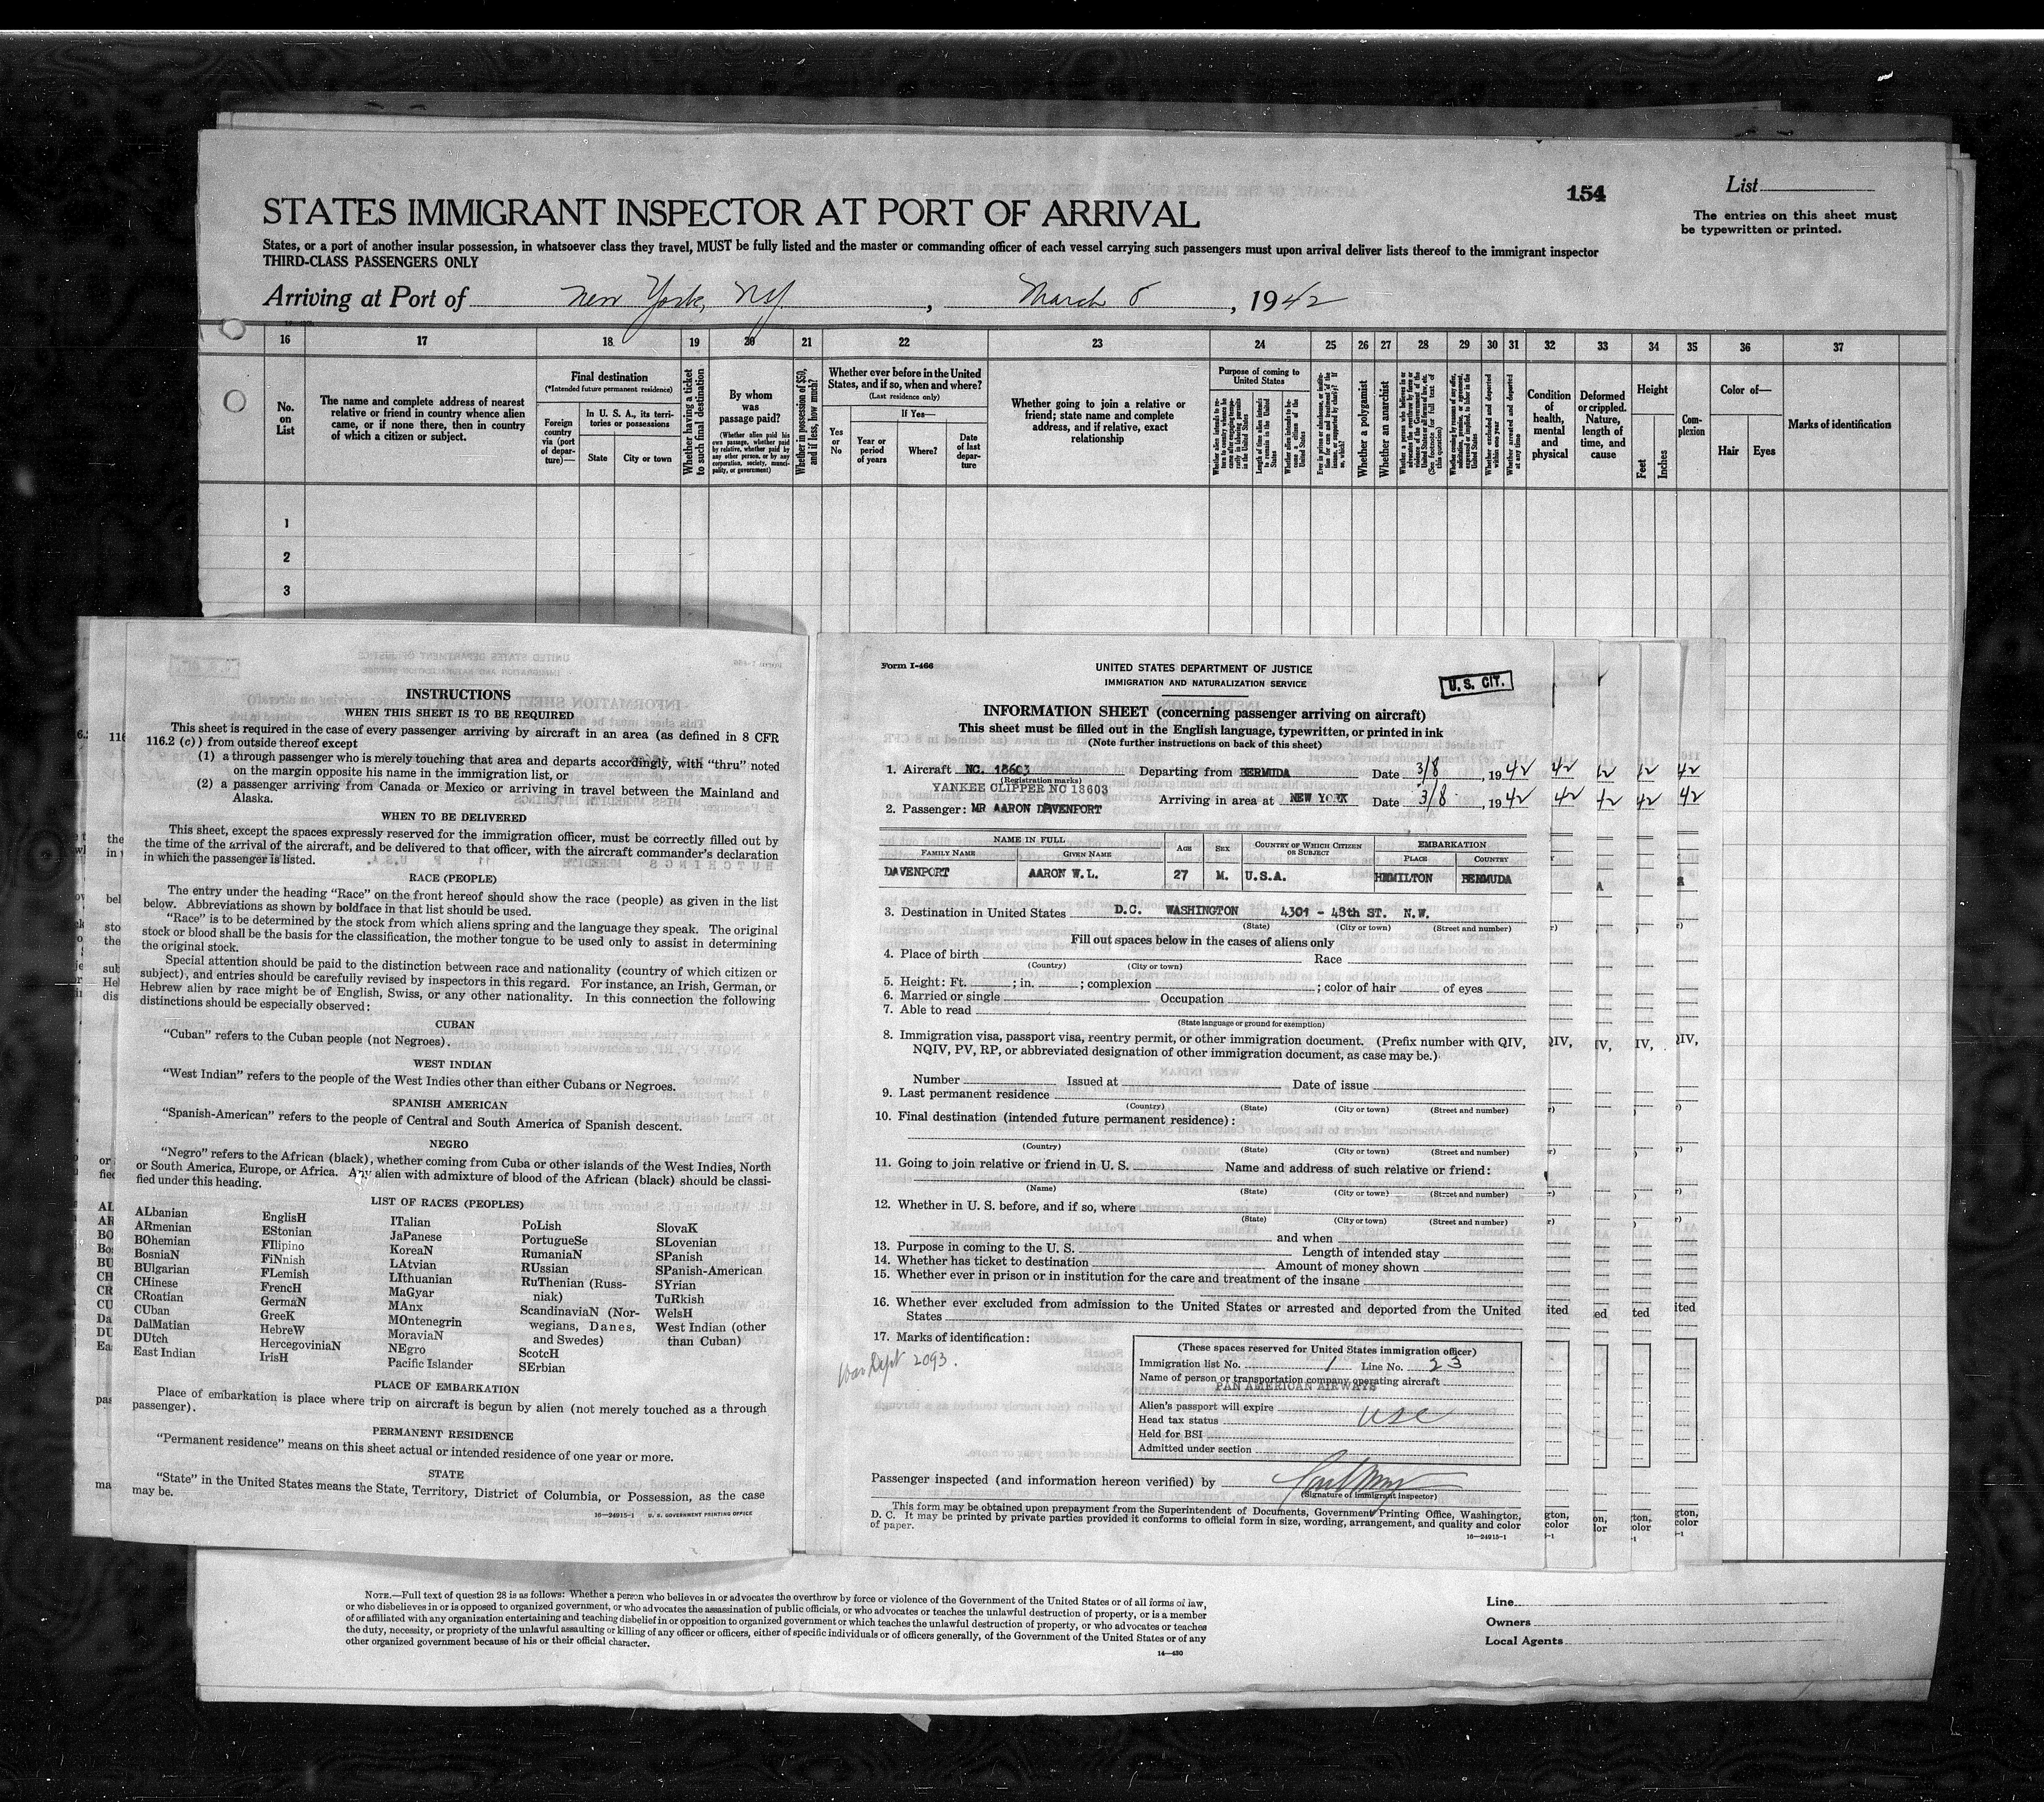 154
List
The entries on this sheet must
be typewritten or printed.
STATES IMMIGRANT INSPECTOR AT PORT OF ARRIVAL
States, or a port of another insular possession, in whatsoever class they travel, MUST be fully listed and the master or commanding officer of each vessel carrying such passengers must upon arrival deliver lists thereof to the immigrant inspector
THIRD-CLASS PASSENGERS ONLY
Arriving at Port of New York, NY, March 8, 1942
16 17 18 19 20 21 22 23 24 25 26 27 28 29 30 31 32 33 34 35 36 37
No.
on
List
The name and complete address of nearest
relative or friend in country whence alien
came, or if none there, then in country
of which a citizen or subject.
Final destination
(*Intended future permanent residence)
Foreign
country
via (port
of depar-
ture)—
In U. S. A., its terri-
tories or possessions
State
City or town
Whether having a ticket
to such final destination
By whom
was
passage paid?
(Whether alien paid his
own passage, whether paid
by relative, whether paid by
any other person, or by any
corporation, society, munici-
pality, or government)
Whether in possession of $50,
and if less, how much?
Whether ever before in the United
States, and if so, when and where?
(Last residence only)
Yes
or
No
If Yes—
Year or
period
of years
Where?
Date
of last
depar-
ture
Whether going to join a relative or
friend; state name and complete
address, and if relative, exact
relationship
Purpose of coming to
United States
Whether a polygamist
Whether an anarchist
Condition
of
health,
mental
and
physical
Deformed
or crippled.
Nature,
length of
time, and
cause
Height
Feet
Inches
Com-
plexion
Color of—
Hair
Eyes
Marks of identification
1
2
3
INSTRUCTIONS
WHEN THIS SHEET IS TO BE REQUIRED
This sheet is required in the case of every passenger arriving by aircraft in an area (as defined in 8 CFR
116.2 (c)) from outside thereof except
(1) a through passenger who is merely touching that area and departs accordingly, with "thru" noted
on the margin opposite his name in the immigration list, or
(2) a passenger arriving from Canada or Mexico or arriving in travel between the Mainland and
Alaska.
WHEN TO BE DELIVERED
This sheet, except the spaces expressly reserved for the immigration officer, must be correctly filled out by
the time of the arrival of the aircraft, and be delivered to that officer, with the aircraft commander's declaration
in which the passenger is listed.
RACE (PEOPLE)
The entry under the heading "Race" on the front hereof should show the race (people) as given in the list
below. Abbreviations as shown by boldface in that list should be used.
"Race" is to be determined by the stock from which aliens spring and the language they speak. The original
stock or blood shall be the basis for the classification, the mother tongue to be used only to assist in determining
the original stock.
Special attention should be paid to the distinction between race and nationality (country of which citizen or
subject), and entries should be carefully revised by inspectors in this regard. For instance, an Irish, German, or
Hebrew alien by race might be of English, Swiss, or any other nationality. In this connection the following
distinctions should be especially observed:
CUBAN
"Cuban" refers to the Cuban people (not Negroes).
WEST INDIAN
"West Indian" refers to the people of the West Indies other than either Cubans or Negroes.
SPANISH AMERICAN
"Spanish-American" refers to the people of Central and South America of Spanish descent.
NEGRO
"Negro" refers to the African (black), whether coming from Cuba or other islands of the West Indies, North
or South America, Europe, or Africa. Any alien with admixture of blood of the African (black) should be classi-
fied under this heading.
LIST OF RACES (PEOPLES)
ALbanian
ARmenian
BOhemian
BosniaN
BUlgarian
CHinese
CRoatian
CUban
DalMatian
DUtch
East Indian
EnglisH
EStonian
FIlipino
FiNnish
FLemish
FrencH
GermaN
GreeK
HebreW
HercegoviniaN
IrisH
ITalian
JaPanese
KoreaN
LAtvian
LIthuanian
MaGyar
MAnx
MOntenegrin
MoraviaN
NEgro
Pacific Islander
PoLish
PortugueSe
RumaniaN
RUssian
RuThenian (Russ-
niak)
ScandinaviaN (Nor-
wegians, Danes,
and Swedes)
ScotcH
SErbian
SlovaK
SLovenian
SPanish
SPanish-American
SYrian
TuRkish
WelsH
West Indian (other
than Cuban)
PLACE OF EMBARKATION
Place of embarkation is place where trip on aircraft is begun by alien (not merely touched as a through
passenger).
PERMANENT RESIDENCE
"Permanent residence" means on this sheet actual or intended residence of one year or more.
STATE
"State" in the United States means the State, Territory, District of Columbia, or Possession, as the case
may be.
16—24915-1 U. S. GOVERNMENT PRINTING OFFICE
Form I-466
UNITED STATES DEPARTMENT OF JUSTICE
IMMIGRATION AND NATURALIZATION SERVICE
U.S. CIT.
INFORMATION SHEET (concerning passenger arriving on aircraft)
This sheet must be filled out in the English language, typewritten, or printed in ink
(Note further instructions on back of this sheet)
1. Aircraft NC. 18603 Departing from BERMUDA Date 3/8, 1942
(Registration marks)
YANKEE CLIPPER NC 18603
Arriving in area at NEW YORK Date 3/8, 1942
2. Passenger: MR AARON DAVENPORT
NAME IN FULL
FAMILY NAME
GIVEN NAME
AGE
SEX
COUNTRY OF WHICH CITIZEN
OR SUBJECT
EMBARKATION
PLACE
COUNTRY
DAVENPORT AARON W.L. 27 M. U.S.A. HEMILTON BERMUDA
3. Destination in United States D.C. WASHINGTON 4301 - 48th ST. N.W.
(State) (City or town) (Street and number)
Fill out spaces below in the cases of aliens only
4. Place of birth Race
(Country) (City or town)
5. Height: Ft. ; in. ; complexion ; color of hair of eyes
6. Married or single Occupation
7. Able to read
(State language or ground for exemption)
8. Immigration visa, passport visa, reentry permit, or other immigration document. (Prefix number with QIV,
NQIV, PV, RP, or abbreviated designation of other immigration document, as case may be.)
Number Issued at Date of issue
9. Last permanent residence
(Country) (State) (City or town) (Street and number)
10. Final destination (intended future permanent residence):
(Country) (State) (City or town) (Street and number)
11. Going to join relative or friend in U. S. Name and address of such relative or friend:
(Name) (State) (City or town) (Street and number)
12. Whether in U. S. before, and if so, where
(State) (City or town) (Street and number)
and when
13. Purpose in coming to the U. S. Length of intended stay
14. Whether has ticket to destination Amount of money shown
15. Whether ever in prison or in institution for the care and treatment of the insane
16. Whether ever excluded from admission to the United States or arrested and deported from the United
States
17. Marks of identification:
War Dept 2093.
(These spaces reserved for United States immigration officer)
Immigration list No. 1 Line No. 23
Name of person or transportation company operating aircraft
PAN AMERICAN AIRWAYS
Alien's passport will expire
Head tax status USC
Held for BSI
Admitted under section
Passenger inspected (and information hereon verified) by
(Signature of immigrant inspector)
This form may be obtained upon prepayment from the Superintendent of Documents, Government Printing Office, Washington,
D. C. It may be printed by private parties provided it conforms to official form in size, wording, arrangement, and quality and color
of paper.
16—24915-1
NOTE.—Full text of question 28 is as follows: Whether a person who believes in or advocates the overthrow by force or violence of the Government of the United States or of all forms of law,
or who disbelieves in or is opposed to organized government, or who advocates the assassination of public officials, or who advocates or teaches the unlawful destruction of property, or is a member
of or affiliated with any organization entertaining and teaching disbelief in or opposition to organized government or which teaches the unlawful destruction of property, or who advocates or teaches
the duty, necessity, or propriety of the unlawful assaulting or killing of any officer or officers, either of specific individuals or of officers generally, of the Government of the United States or of any
other organized government because of his or their official character.
14—430
Line
Owners
Local Agents